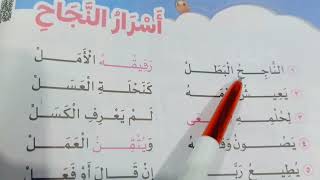 أَسْرَارُ النَّجَاحِ
١ النَّاجِحُ الْبَطَلْ رَفِيقُهُ الْأَمَلْ
٢ يَعِيشُ كَنَحْلَةِ الْعَسَلْ
٣ لِحُلْمِهِ لَمْ يَعْرِفِ الْكَسَلْ
٤ يَصُونُ وَيُتْقِنُ الْعَمَلْ
٥ يُطِيعُ إِنْ قَالَ أَوْ فَعَلْ